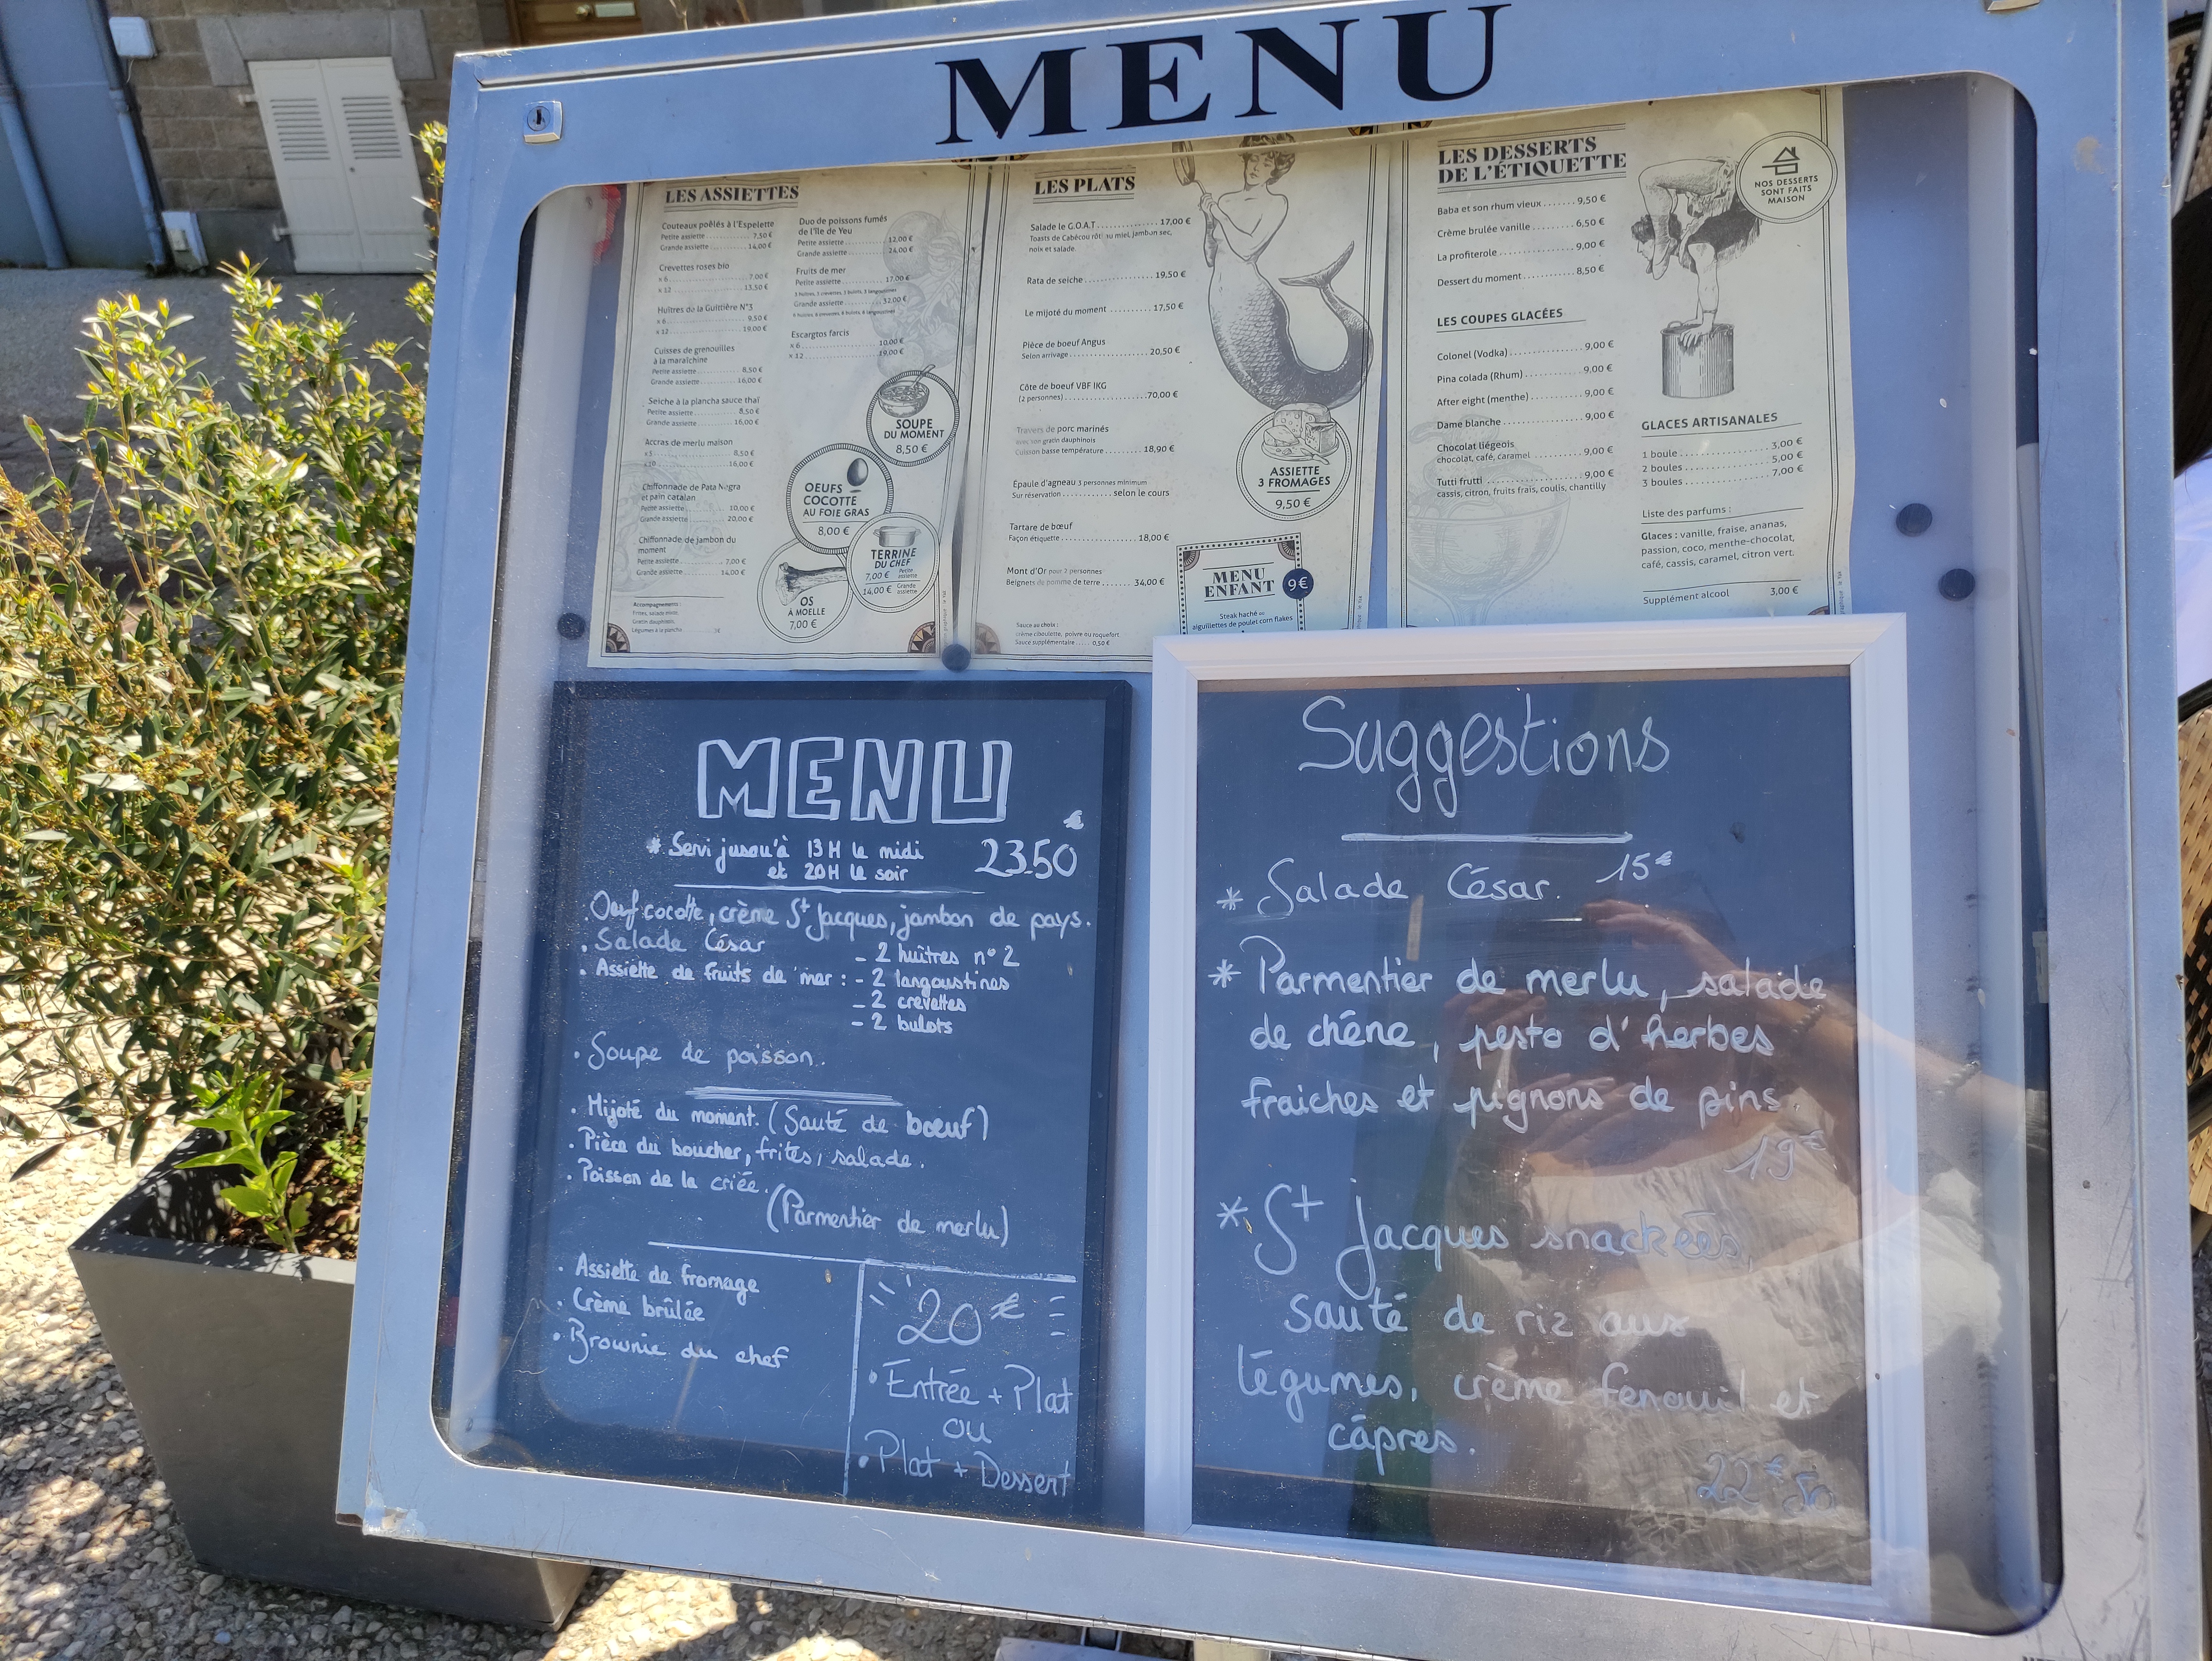 MENU
LES ASSIETTES
Couteaux poêlés à l'Espelette
Petite assiette 7,50 €
Grande assiette 14,00 €
Crevettes roses bio
x 6 7,00 €
x 12 13,50 €
Huîtres de la Guittière N°3
x 6 9,50 €
x 12 19,00 €
Cuisses de grenouilles
à la maraîchine
Petite assiette 8,50 €
Grande assiette 16,00 €
Seiche à la plancha sauce thaï
Petite assiette 8,50 €
Grande assiette 16,00 €
Accras de merlu maison
x 5 8,50 €
x 10 16,00 €
Chiffonnade de Pata Negra
et pain catalan
Petite assiette 10,00 €
Grande assiette 20,00 €
Chiffonnade de jambon du
moment
Petite assiette 7,00 €
Grande assiette 14,00 €
Accompagnements :
Frites, salade
Gratin dauphinois,
Légumes à la plancha 3€
Duo de poissons fumés
de l'île de Yeu
Petite assiette 12,00 €
Grande assiette 24,00 €
Fruits de mer
Petite assiette 17,00 €
Grande assiette 32,00 €
Escargtos farcis
x 6 10,00 €
x 12 19,00 €
SOUPE
DU MOMENT
8,50 €
OEUFS
COCOTTE
AU FOIE GRAS
8,00 €
TERRINE
DU CHEF
7,00 € Petite assiette
14,00 € Grande assiette
OS
À MOELLE
7,00 €
LES PLATS
Salade le G.O.A.T. 17,00 €
Toasts de Cabécou rôti au miel, jambon sec,
noix et salade.
Rata de seiche 19,50 €
Le mijoté du moment 17,50 €
Pièce de boeuf Angus
Selon arrivage 20,50 €
Côte de boeuf VBF 1KG
(2 personnes) 70,00 €
Travers de porc marinés
avec son gratin dauphinois
Cuisson basse température 18,90 €
Epaule d'agneau 3 personnes minimum
Sur réservation selon le cours
Tartare de bœuf
Façon étiquette 18,00 €
Mont d'Or pour 2 personnes
Beignets de pomme de terre 34,00 €
Sauce au choix :
crème ciboulette, poivre ou roquefort.
Sauce supplémentaire 0,50 €
ASSIETTE
3 FROMAGES
9,50 €
MENU
ENFANT 9€
Steak haché ou
aiguillettes de poulet corn flakes
LES DESSERTS
DE L'ÉTIQUETTE
Baba et son rhum vieux 9,50 €
Crème brulée vanille 6,50 €
La profiterole 9,00 €
Dessert du moment 8,50 €
LES COUPES GLACÉES
Colonel (Vodka) 9,00 €
Pina colada (Rhum) 9,00 €
After eight (menthe) 9,00 €
Dame blanche 9,00 €
Chocolat liégeois
chocolat, café, caramel 9,00 €
Tutti frutti 9,00 €
cassis, citron, fruits frais, coulis, chantilly
NOS DESSERTS
SONT FAITS
MAISON
GLACES ARTISANALES
1 boule 3,00 €
2 boules 5,00 €
3 boules 7,00 €
Liste des parfums :
Glaces : vanille, fraise, ananas,
passion, coco, menthe-chocolat,
café, cassis, caramel, citron vert.
Supplément alcool 3,00 €
MENU
* Servi jusqu'à 13H le midi
et 20H le soir
23.50 €
. Oeuf cocotte, crème St Jacques, jambon de pays.
. Salade César
. Assiette de fruits de mer : - 2 huîtres n° 2
- 2 langoustines
- 2 crevettes
- 2 bulots
. Soupe de poisson.
. Mijoté du moment. (Sauté de bœuf)
. Pièce du boucher, frites, salade.
. Poisson de la criée.
(Parmentier de merlu)
. Assiette de fromage
. Crème brûlée
. Brownie du chef
20€
. Entrée + Plat
ou
. Plat + Dessert
Suggestions
* Salade César. 15€
* Parmentier de merlu, salade
de chêne, pesto d'herbes
fraiches et pignons de pins.
19€
* St Jacques snackées,
sauté de riz aux
légumes, crème fenouil et
câpres.
22€50